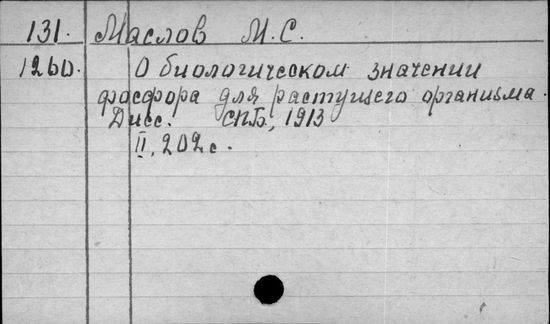 131. Маслов М.С.
1260. О биологическом значении
фосфора для растущего организма.
Дисс. СПБ, 1913
II, 202 с.